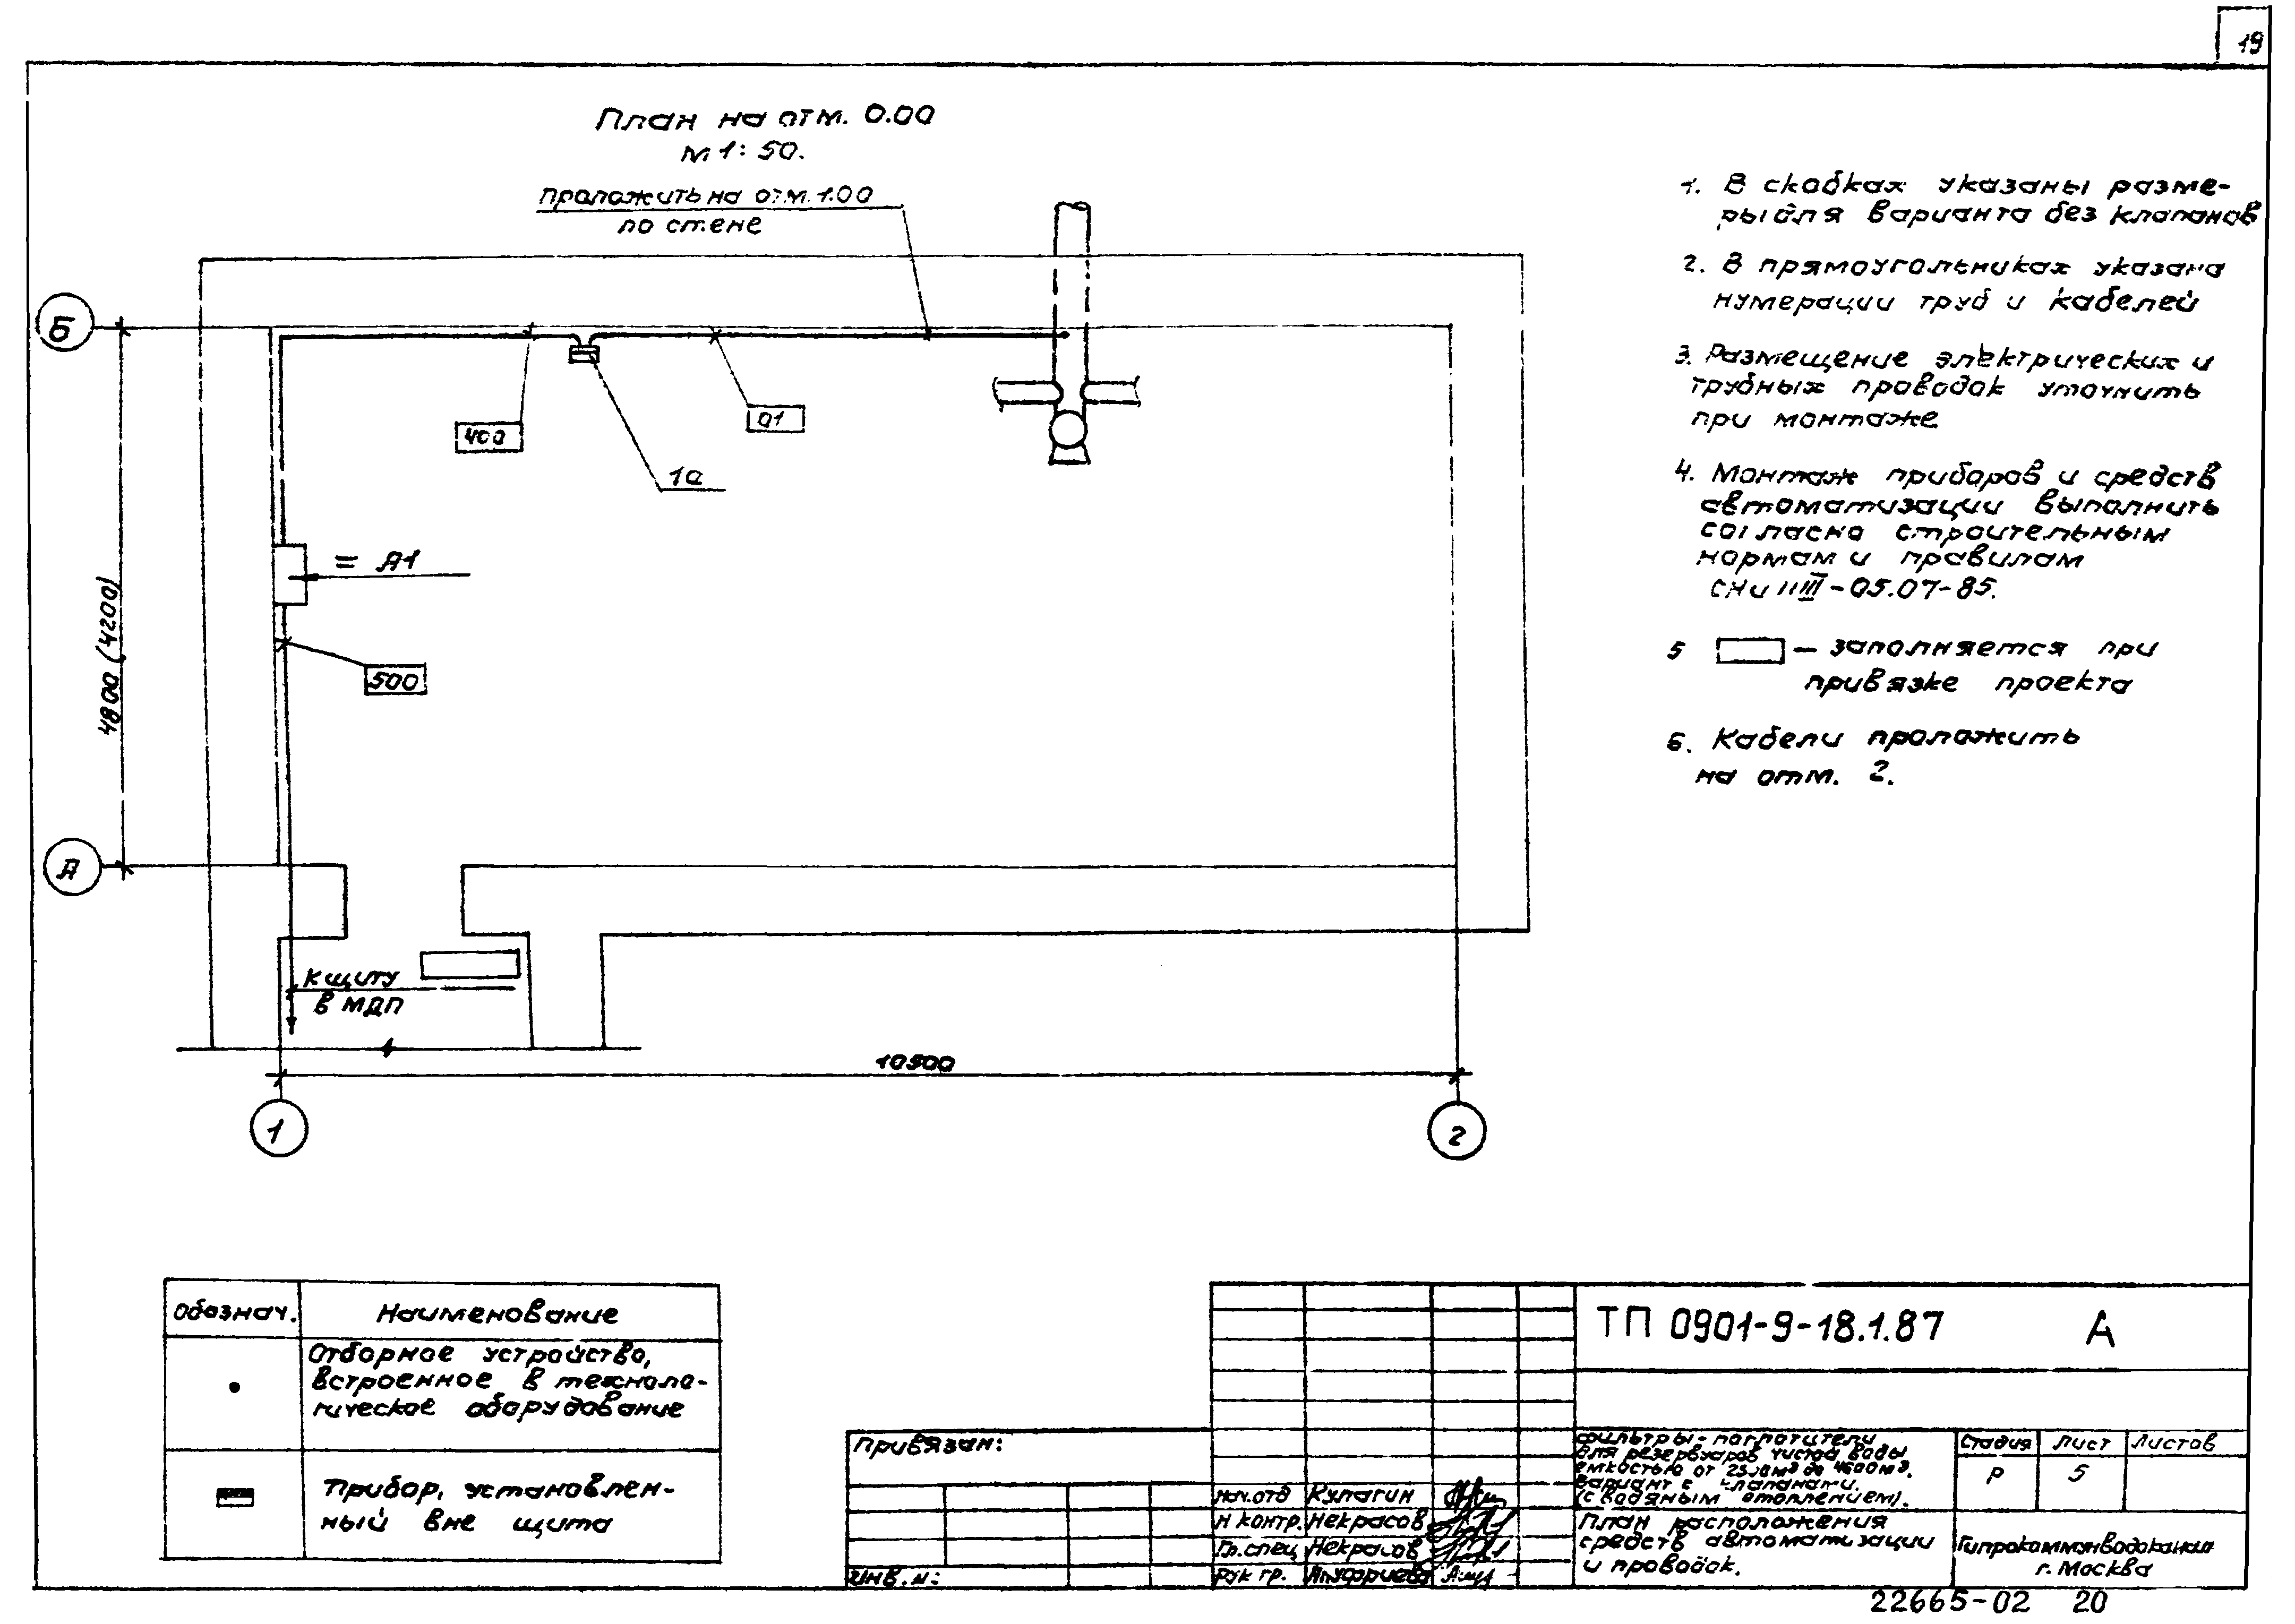 19
План на отм. 0.00
М 1:50.
проложить на отм. 1.00
по стене
Б
400
01
1а
= А1
500
4800 (4200)
А
К щиту
в МДП
10500
1
2
1. В скобках указаны разме-
ры для варианта без клапанов
2. В прямоугольниках указана
нумерации труб и кабелей
3. Размещение электрических и
трубных проводок уточнить
при монтаже
4. Монтаж приборов и средств
автоматизации выполнить
согласно строительным
нормам и правилам
СНиП III-05.07-85.
5 — заполняется при
привязке проекта
6. Кабели проложить
на отм. 2.
Обознач. Наименование
Отборное устройство,
встроенное в техноло-
гическое оборудование
Прибор, установлен-
ный вне щита
Привязан:
Инв.н:
Нач.отд Кулагин
Н контр. Некрасов
Гл.спец Некрасов
Рук гр. Ануфриева
ТП 0901-9-18.1.87 А
Фильтры-поглотители
для резервуаров чистой воды
емкостью от до 4600м3.
вариант с клапанами.
(с водяным отоплением).
Стадия Лист Листов
Р 5
План расположения
средств автоматизации
и проводок.
Гипрокоммунводоканал
г. Москва
22665-02 20